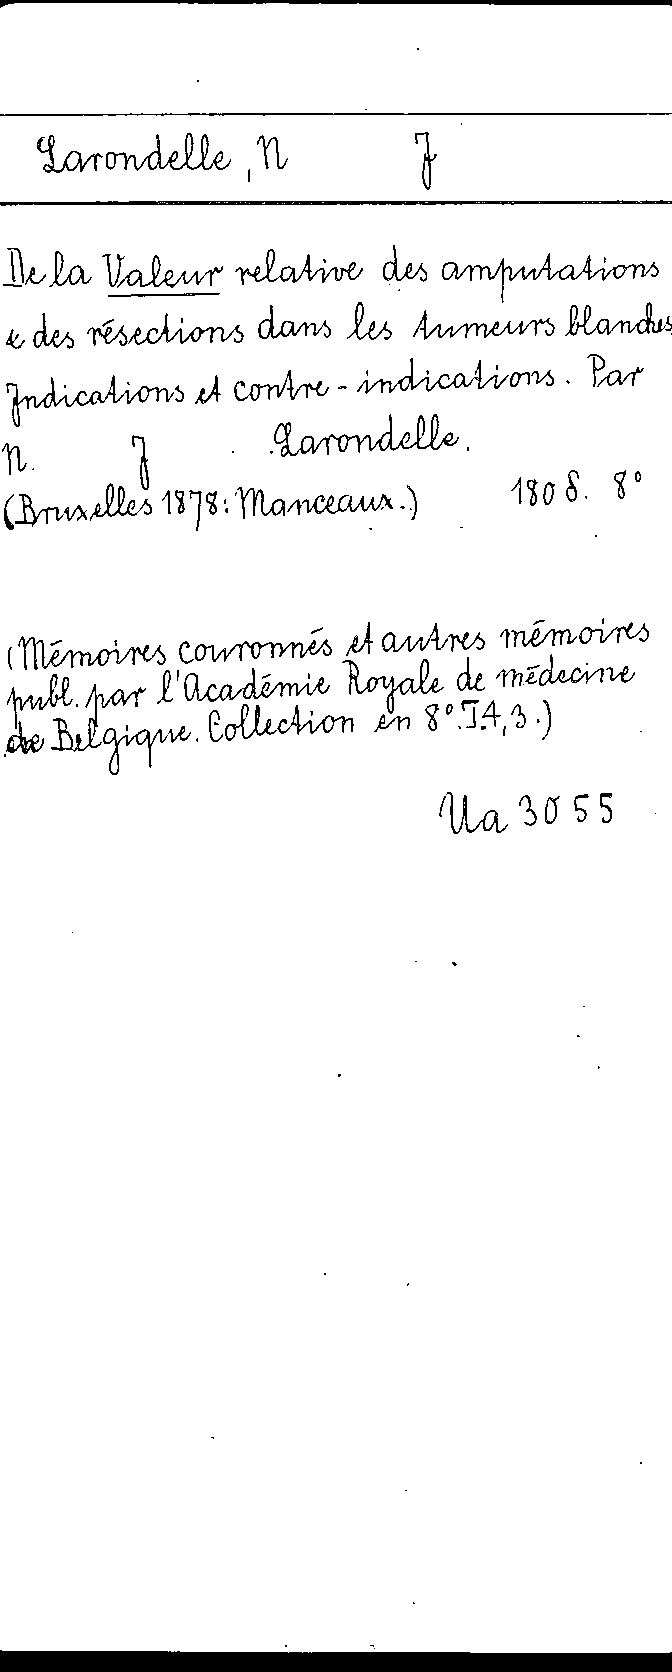 Larondelle, N J
De la Valeur relative des amputations
& des résections dans les tumeurs blanches
Indications et contre-indications. Par
N. J Larondelle.
(Bruxelles 1878: Manceaux.) 180 S. 8°
(Mémoires couronnés et autres mémoires
publ. par l'Académie Royale de médecine
de Belgique. Collection en 8°. T.4,3.)
Ua 3055